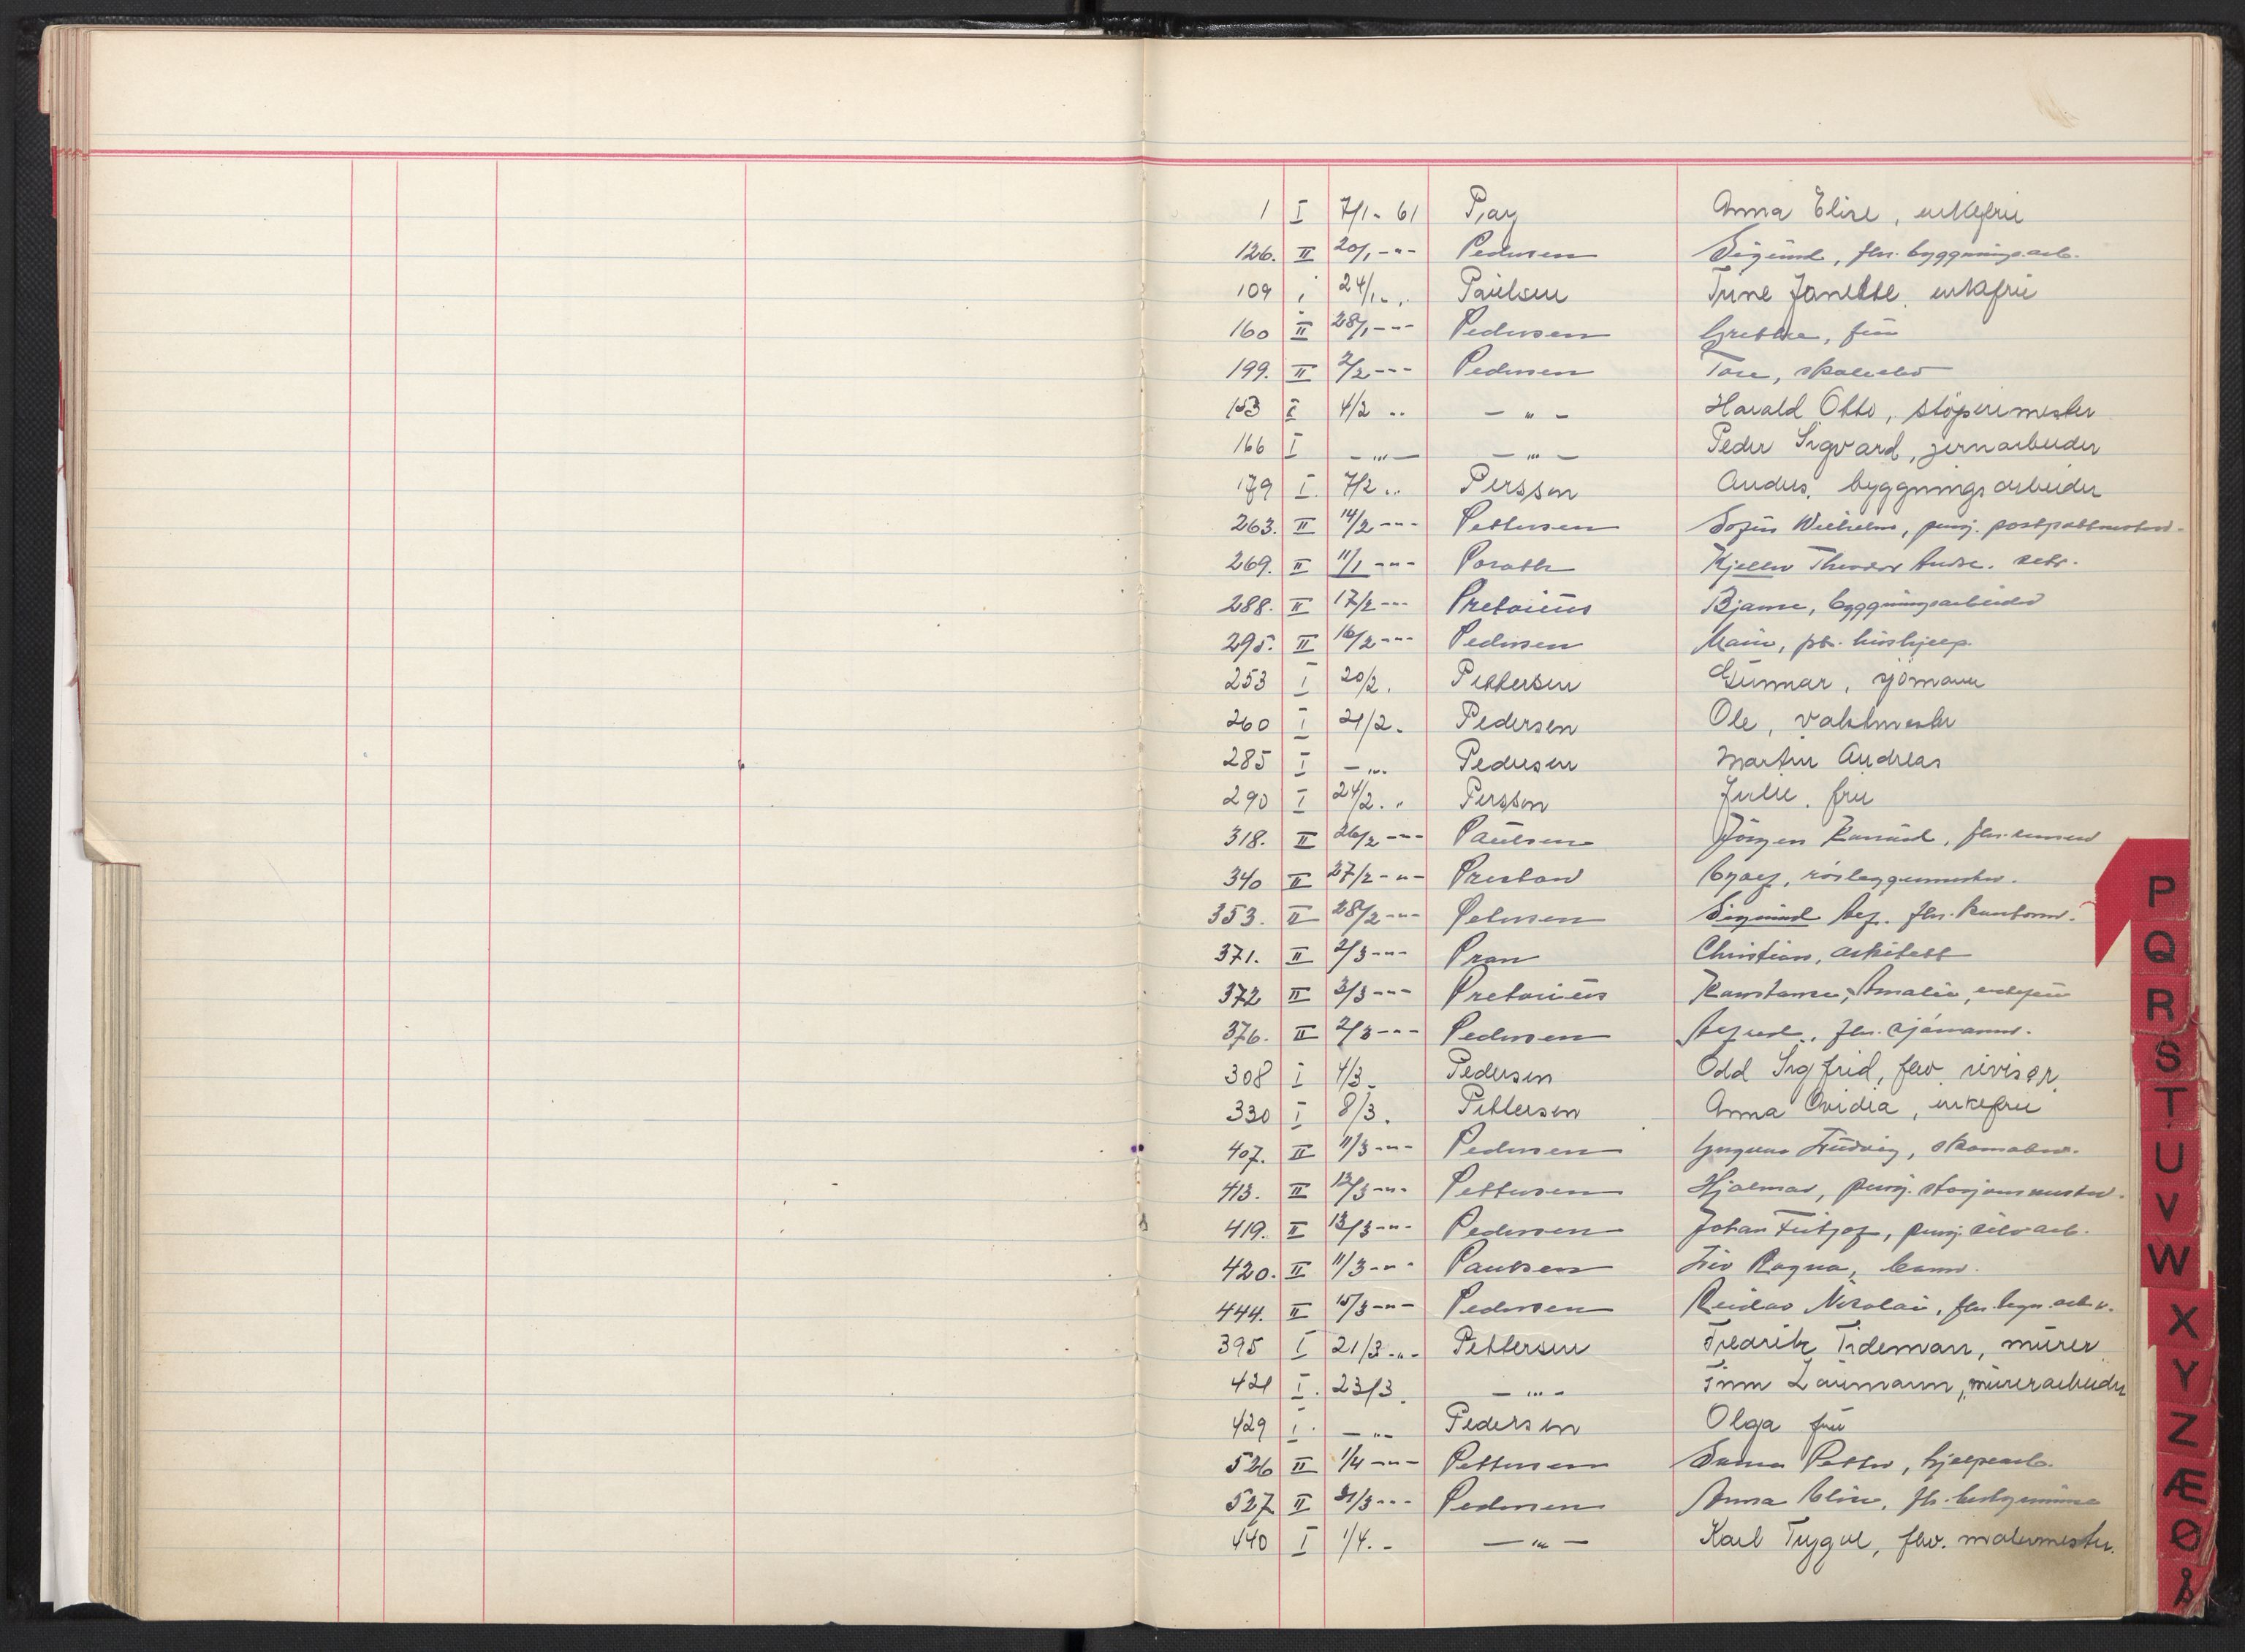 1 I 7/1- 61 Pay Anna Elise, enkefru
126. II 20/1 -"- Pedersen Sigurd, fhv. bygningsarb.
109 24/1 Paulsen Trine Janette, enkefru
160 II 28/1 -"- Pedersen Grethe, fru
199. II 2/2 -"- Pedersen Tore, skoleelev
153 I 4/2 " - " - Harald Otto, støperimester
166 I - " - - " - Peder Sigvard, jernarbeider
179 I. 7/2 " Persson Anders, bygningsarbeider
263. II 14/2 -"- Pettersen Sofus Wilhelm, pensj.
269. II 11/1 -"- Porath Kjeller Theodor
288. II 17/2 -"- Pretorius Bjarne, bygningsarbeider
295. II 16/2 -"- Pedersen
253 I 20/2. Pettersen Gunnar, sjömann
260 I 21/2. Pedersen Ole, vaktmester
285 I - " Pedersen Martin Andreas
290 I 24/2. " Persson Julie, fru
318. II 26/2 -"- Paulsen Jörgen
340 II 27/2 -"- Prestow rörleggermester.
353. II 28/2 -"- Petersen Sigurd
371. II 2/3 -"- Pran Christian, arkitekt
372 II 3/3 -"- Pretorius Konstanse Amalie, enkefru
376. II 2/3 -"- Pedersen Alfred, fhv. sjömann.
308 I 4/3 - Pedersen Odd Sigfrid, fhv. revisor
330 I 8/3. Pettersen Anna Ovidia, enkefru
407. II 11/3 -"- Pedersen Yngvar Ludvig, skomaker.
413. II 12/3 -"- Pettersen Hjalmar, pensj. stasjonsmester.
419. II 13/3 -"- Pedersen Johan Fritjof, pensj. sølvarb.
420. II 11/3 -"- Paulsen Liv Ragna, barn.
444. II 15/3 -"- Pedersen Reidar Nikolai, fhv.
395 I 21/3 -"- Pettersen Fredrik Tideman, murer
421 I. 23/3. - " - Finn Laumann, murerarbeider
429 I. - " - Pedersen Olga fru
526 II 1/4 -"- Pettersen Petter, hjelpearb.
527 II 31/3 -"- Pedersen Anna Elise,
440 I 1/4. - - " - Karl Trygve, fhv. malermester.
P
Q
R
S
T
U
V
W
X
Y
Z
Æ
Ø
Å